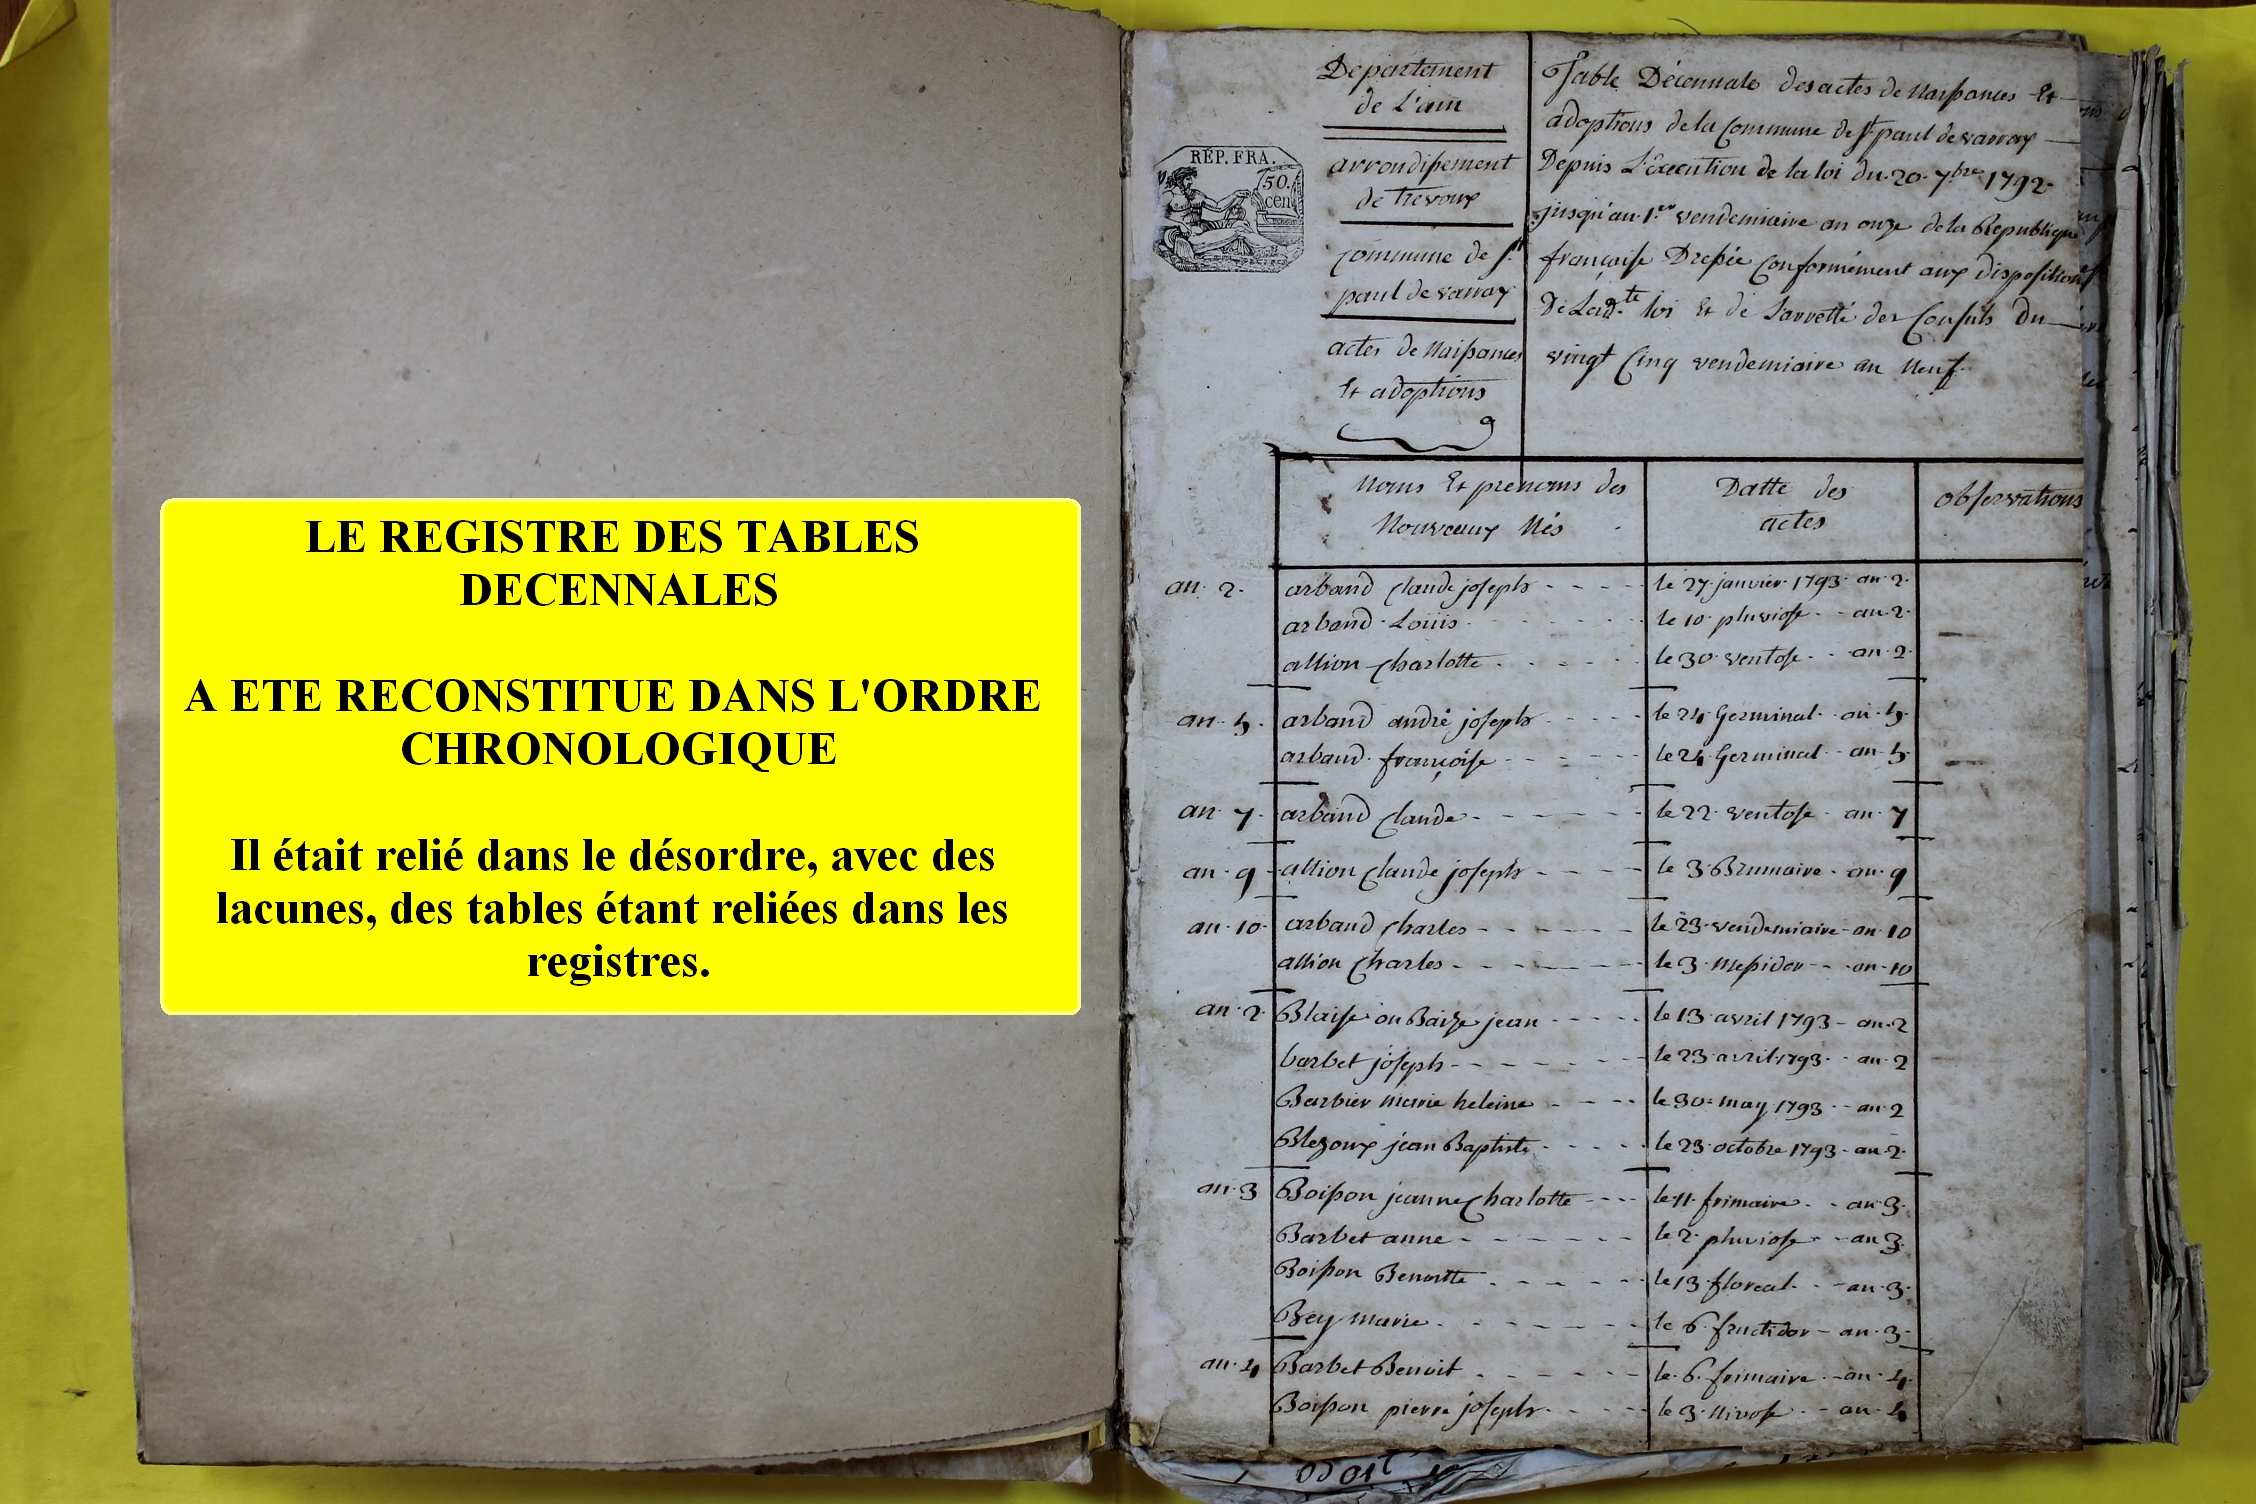 LE REGISTRE DES TABLES
DECENNALES
A ETE RECONSTITUE DANS L'ORDRE
CHRONOLOGIQUE
Il était relié dans le désordre, avec des
lacunes, des tables étant reliées dans les
registres.
Departement
de L'ain
RÉP. FRA.
50.
cen.
arrondissement
de trevoux
commune de St
paul de varax
actes de Naissances
Et adoptions
Table Décennale des actes de Naissances Et
adoptions de la Commune de St paul de varax
Depuis L'execution de la loi du 20 7bre 1792
jusqu'au 1er vendemiaire an onze de la Republique
française Dressée Conformément aux dispositions
De Ladte loi Et de Larretté des Consuls du
vingt Cinq vendemiaire an Neuf
Noms Et prenoms des
Nouveaux Nés
Datte des
actes
observations
an 2. arband Claude joseph le 27 janvier 1793 an 2
arband Louis le 10 pluviose an 2
allion Charlotte le 30 ventose an 2
an 5. arband andré joseph le 24 Germinal an 5
arband françoise le 24 Germinal an 5
an 7 arband Claude le 22 ventose an 7
an 9 allion Claude joseph le 3 Brumaire an 9
an 10 arband Charles le 23 vendemiaire an 10
allion Charles le 3 Messidor an 10
an 2 Blaise ou Baize jean le 13 avril 1793 an 2
barbet joseph le 23 avril 1793 an 2
Barbier marie heleine le 30 may 1793 an 2
Blezoux jean Baptiste le 23 octobre 1793 an 2
an 3 Boisson jeanne Charlotte le 11 frimaire an 3
Barbet anne le 2 pluviose an 3
Boisson Benoitte le 13 floreal an 3
Bey marie le 6 fructidor an 3
an 4 Barbet Benoit le 6 frimaire an 4
Boisson pierre joseph le 3 Nivose an 4